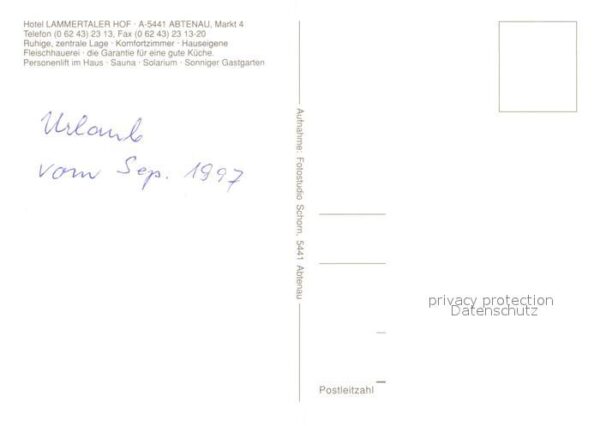 Hotel LAMMERTALER HOF · A-5441 ABTENAU, Markt 4
Telefon (0 62 43) 23 13, Fax (0 62 43) 23 13-20
Ruhige, zentrale Lage · Komfortzimmer · Hauseigene
Fleischhauerei · die Garantie für eine gute Küche.
Personenlift im Haus · Sauna · Solarium · Sonniger Gastgarten
Urlaub
vom Sep. 1997
Aufnahme: Fotostudio Schorn, 5441 Abtenau
privacy protection
Datenschutz
Postleitzahl